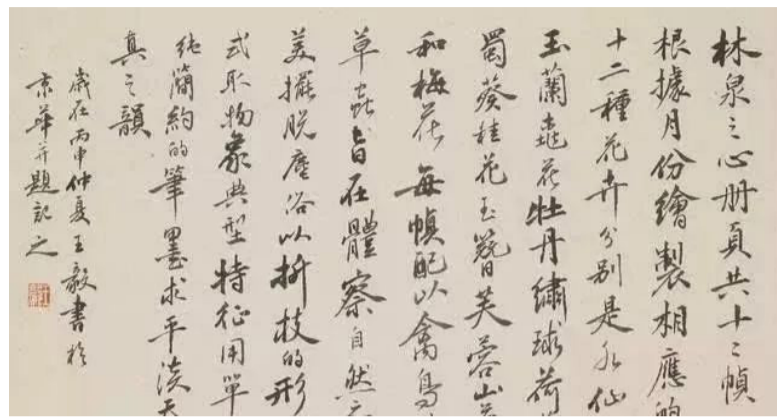 林泉之心册頁共十二幀
根據月份繪製相應的
十二種花卉分别是水仙
玉蘭桃花牡丹繡球荷
蜀葵桂花玉簪芙蓉山茶
和梅花每幀配以禽鳥
草蟲旨在體察自然之
美擺脱塵俗以折枝的形
式取物象典型特征用單
純簡約的筆墨求平淡天
真之韻
歲在丙申仲夏王毅書於
京華并題記之